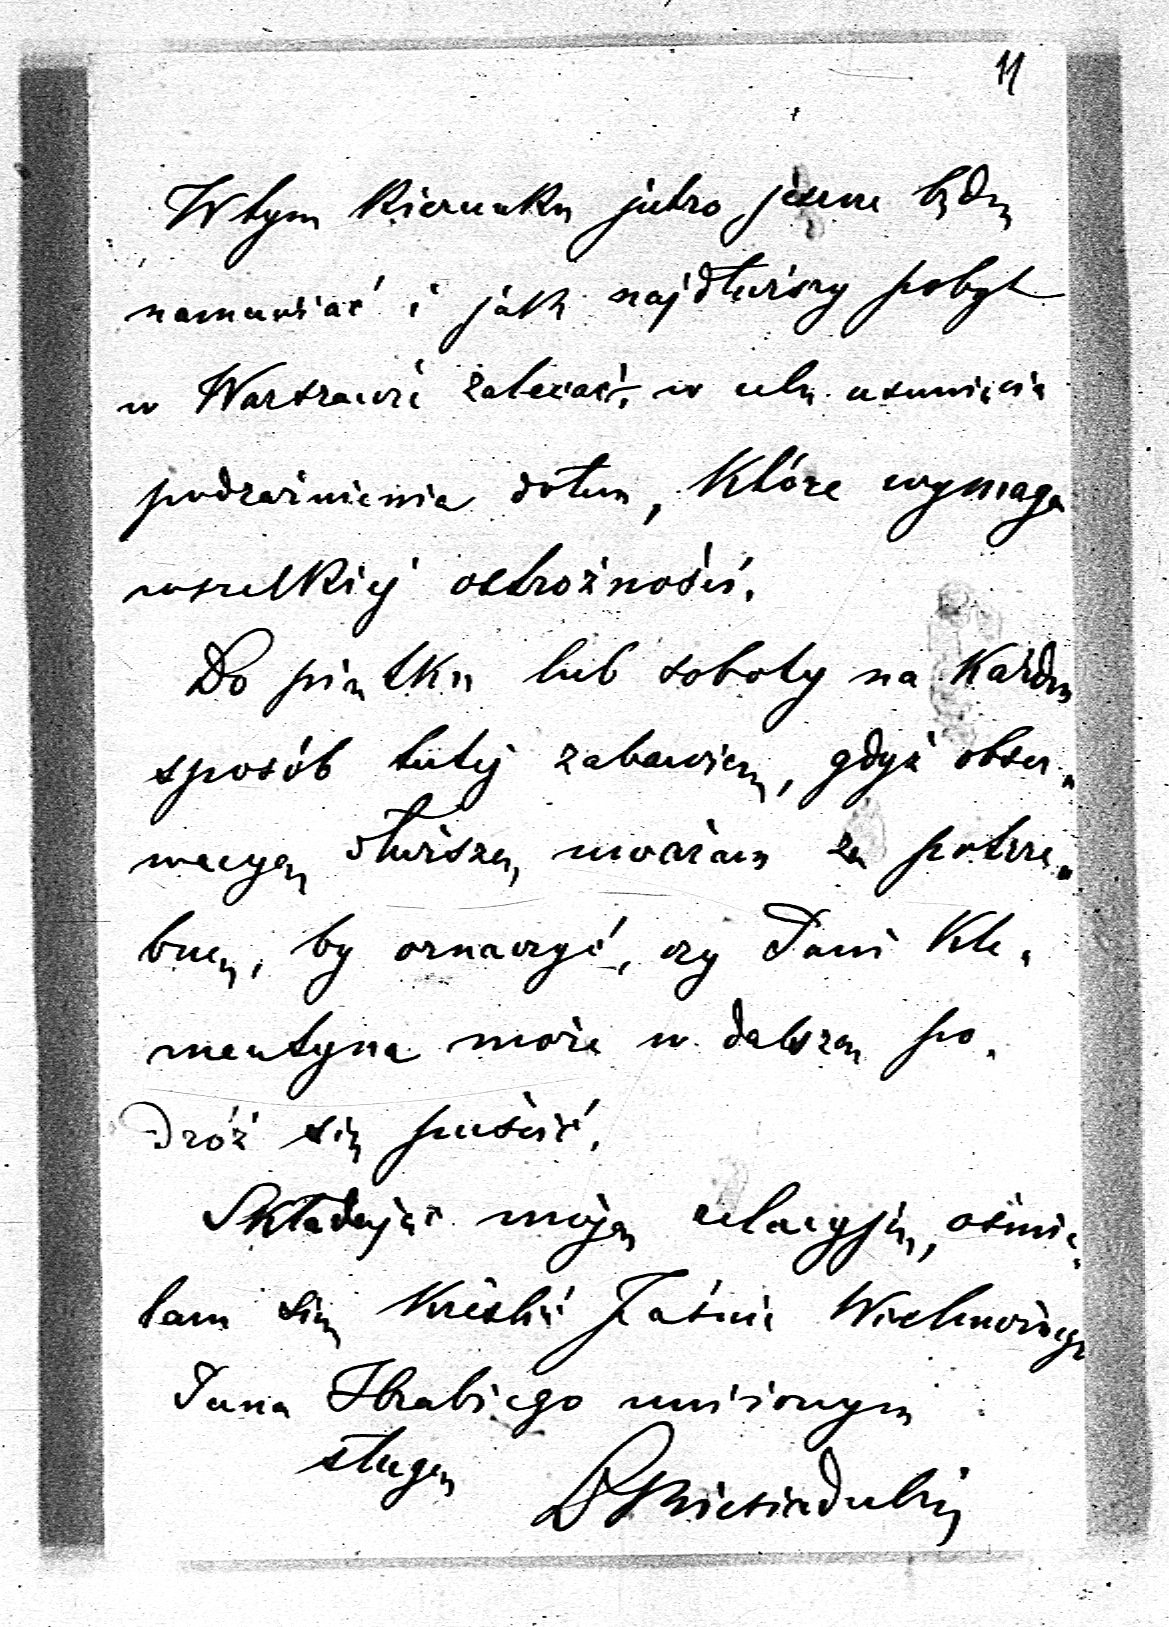 11
W tym kierunku jutro jeszcze będę
namawiać i jak najdłuższy pobyt
w Warszawie zalecać, w celu usunięcia
podrażnienia dołu, które wymaga
wszelkiej ostrożności.
Do piątku lub soboty na każdy
sposób tutej zabawię, gdyż obser-
wacyę dłuższą uważam za potrze-
bną, by oznaczyć, czy Pani Kle-
mentyna może w dalszą po-
dróż się puścić.
Składając moją relacyję, ośmie-
lam się kreślić Jaśnie Wielmożnego
Pana Hrabiego uniżonym
sługą